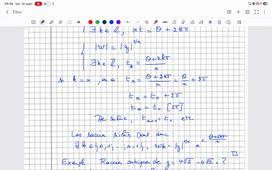 ∃ k ∈ ℤ, nt = θ + 2kπ
|w| = |z|^{1/n}
∃ k ∈ ℤ, t_k = (θ+2kπ)/n
si k = n, on a : t_n = (θ+2nπ)/n = θ/n + 2π
t_n = t_0 + 2π
t_n ≡ t_0 [2π]
De même, t_{n+1} ≡ t_1 etc
Les racines n-ièmes sont donc
∀ k ∈ {0, 1, …, n-1}, w_k = |z|^{1/n} e^{i (θ+2kπ)/n}
Exemple Racines cubiques de z = 4√2 - 4√2 i ?